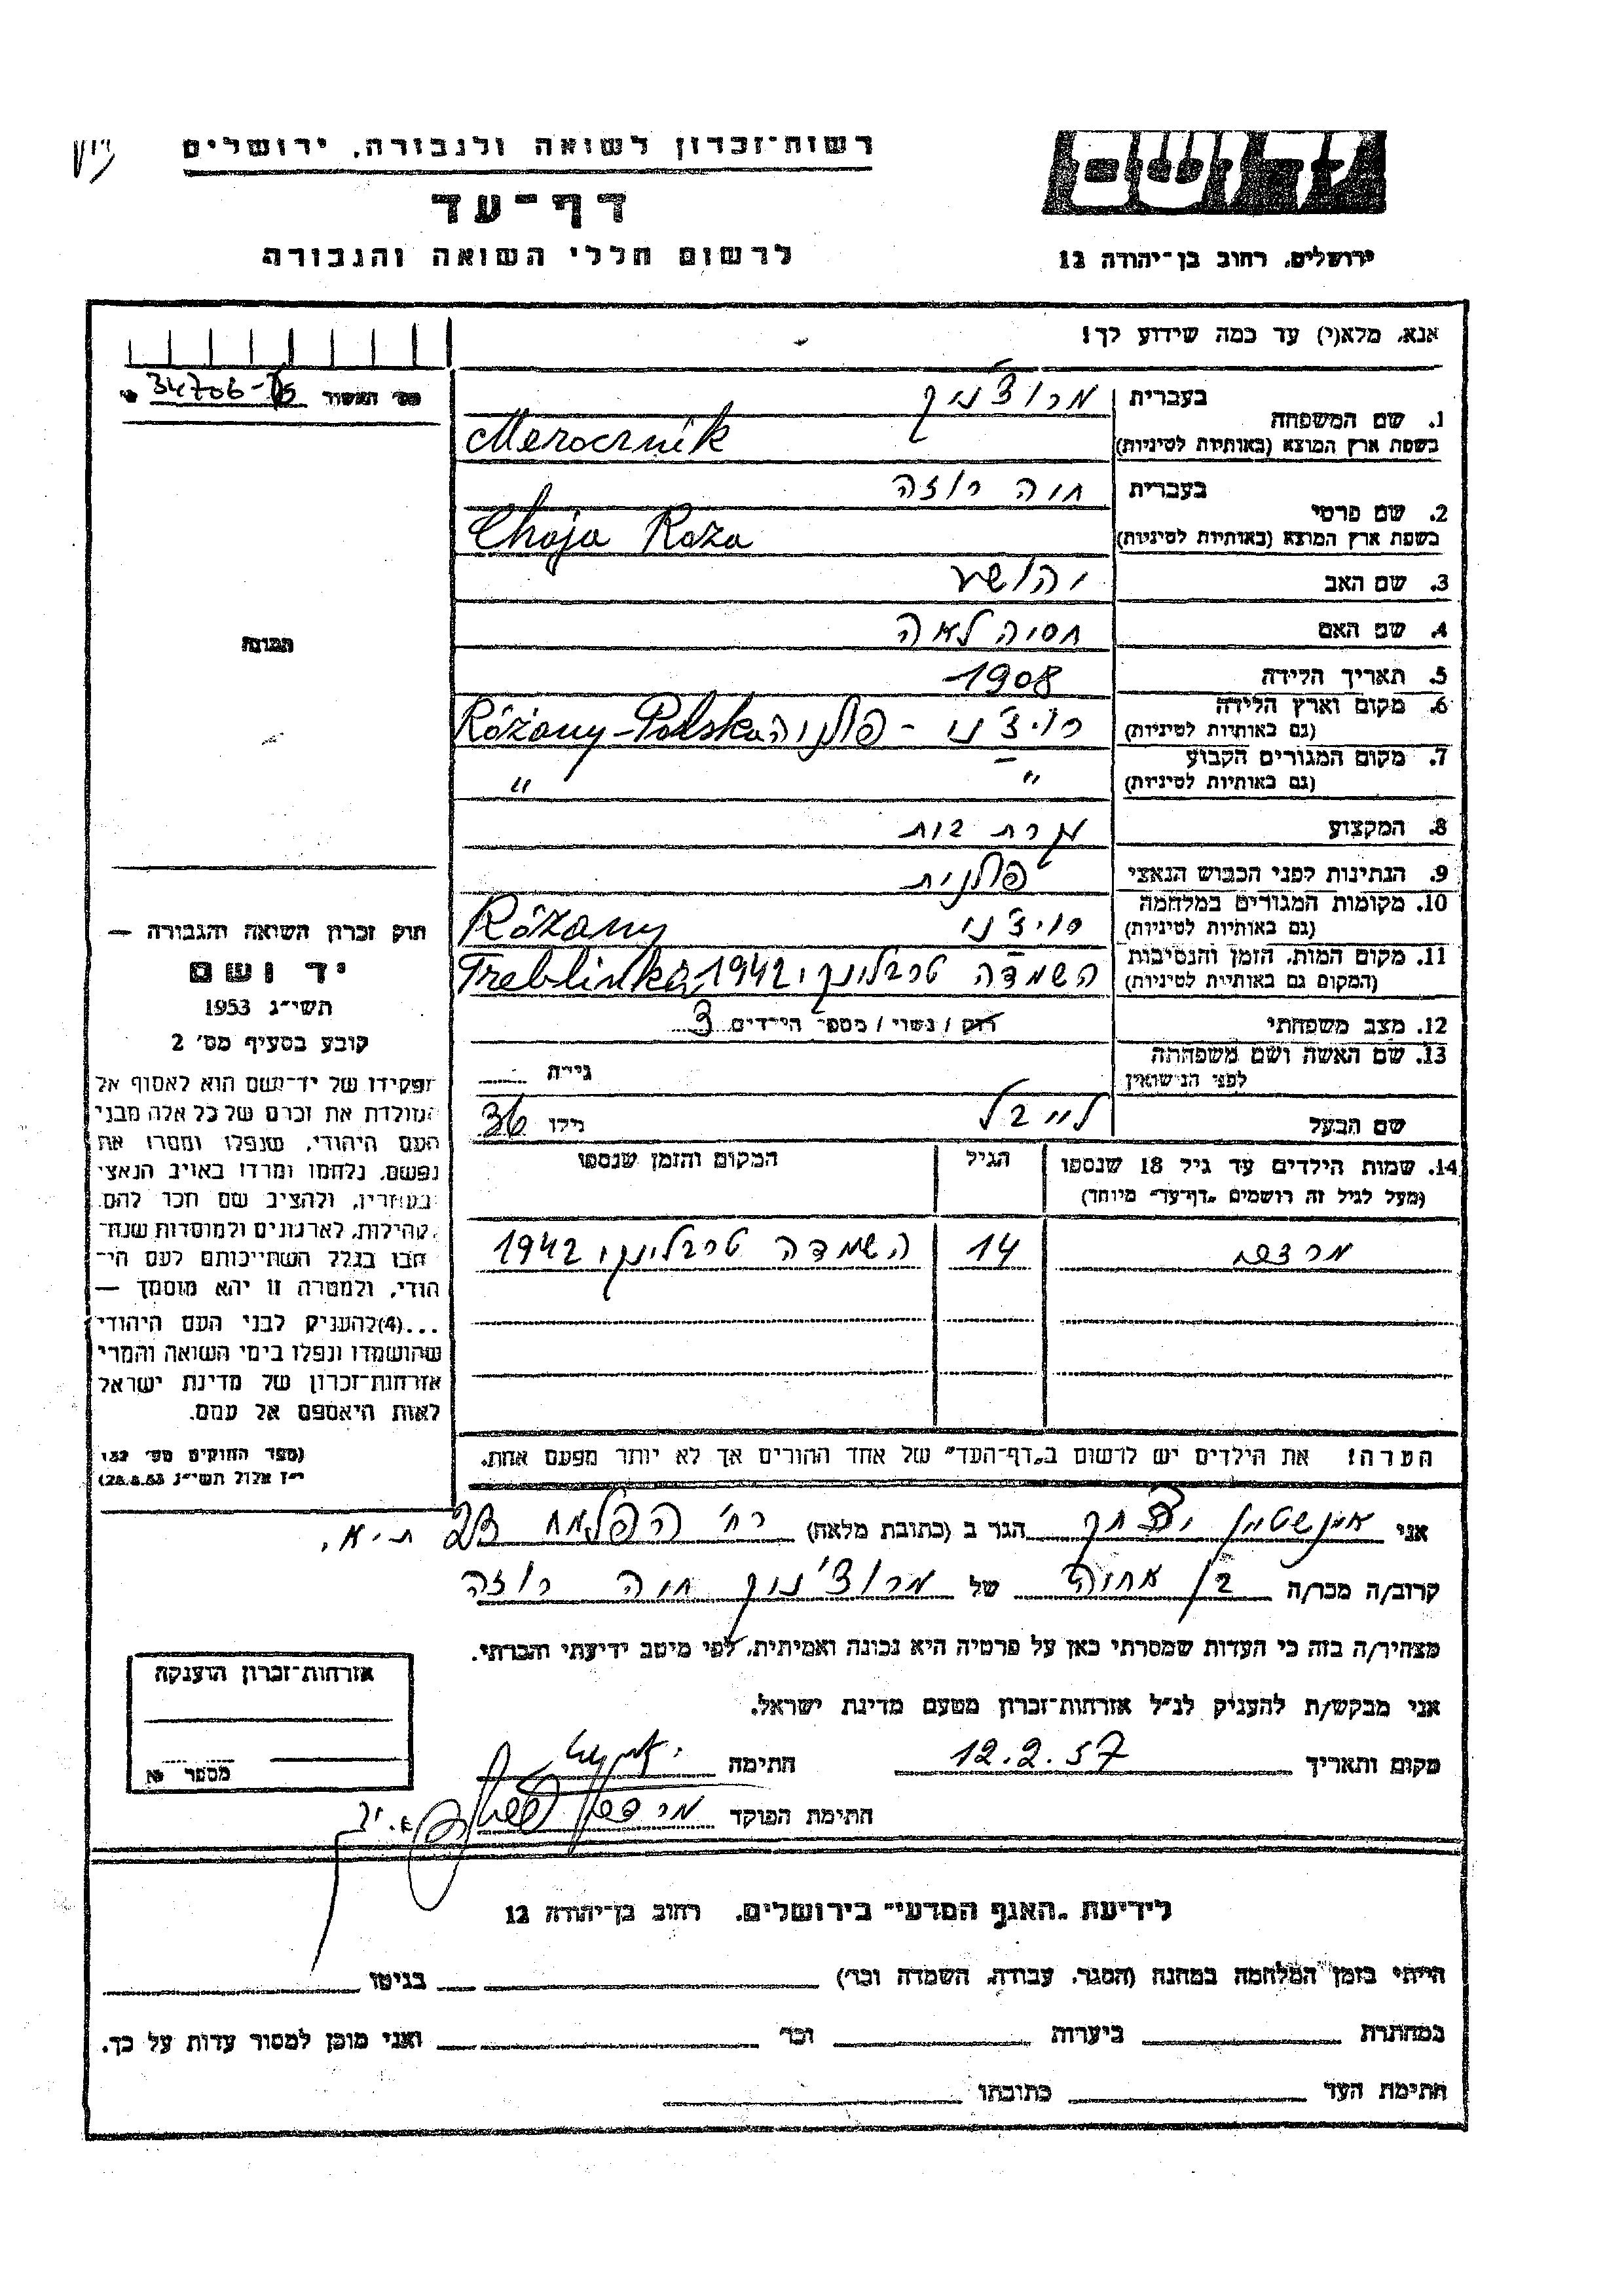 רשות־זכרון לשואה ולגבורה, ירושלים
דף־עד
לרשום חללי השואה והגבורה
ירושלים, רחוב בן־יהודה 12
אנא, מלא(י) עד כמה שידוע לך!
1. שם המשפחה
בעברית מרוצ'ניק
בשפת ארץ המוצא (באותיות לטיניות) Merocznik
2. שם פרטי
בעברית חוה רוזה
בשפת ארץ המוצא (באותיות לטיניות) Chaja Roza
3. שם האב יהושע
4. שם האם חסיה לאה
5. תאריך הלידה 1908
6. מקום וארץ הלידה רוז'נוי - פולניה Różany-Polska
(גם באותיות לטיניות)
7. מקום המגורים הקבוע " "
(גם באותיות לטיניות)
8. המקצוע עקרת בית
9. הנתינות לפני הכבוש הנאצי פולנית
10. מקומות המגורים במלחמה Różany
(גם באותיות לטיניות)
11. מקום המות, הזמן והנסיבות השמדה טרבלינקי 1942 Treblinka
(המקום גם באותיות לטיניות)
12. מצב משפחתי רוק / נשוי / מספר הילדים 3
13. שם האשה ושם משפחתה
לפני הנישואין גילה
שם הבעל לייבל גילו 36
14. שמות הילדים עד גיל 18 שנספו הגיל המקום והזמן שנספו
(מעל לגיל זה רושמים "דף־עד" מיוחד)
14 השמדה טרבלינקי 1942
הערה! את הילדים יש לרשום ב"דף־העד" של אחד ההורים אך לא יותר מפעם אחת.
מס' האשור 34706
תמונה
חוק זכרון השואה והגבורה —
יד ושם
תשי״ג 1953
קובע בסעיף מס׳ 2
תפקידו של יד־ושם הוא לאסוף אל
המולדת את זכרם של כל אלה מבני
העם היהודי, שנפלו ומסרו את
נפשם, נלחמו ומרדו באויב הנאצי
ובעוזריו, ולהציב שם וזכר להם,
לקהילות, לארגונים ולמוסדות שנח־
רבו בגלל השתייכותם לעם הי־
הודי, ולמטרה זו יהא מוסמך —
...(4)להעניק לבני העם היהודי
שהושמדו ונפלו בימי השואה והמרי
אזרחות־זכרון של מדינת ישראל
לאות היאספם אל עמם.
(ספר החוקים מס׳ 132
י״ז אלול תשי״ג 28.8.53)
אני יצחק הגר ב (כתובת מלאה) רח' הפלמח 23 ת.א.
קרוב/ה מכר/ה בן אחות של מרוצ'ניק חוה רוזה
מצהיר/ה בזה כי העדות שמסרתי כאן על פרטיה היא נכונה ואמיתית, לפי מיטב ידיעתי והכרתי.
אני מבקש/ת להעניק לנ״ל אזרחות־זכרון מטעם מדינת ישראל.
מקום ותאריך 12.2.57 חתימה
חתימת הפוקד
אזרחות־זכרון הוענקה
מספר
לידיעת "האגף המדעי" בירושלים, רחוב בן־יהודה 12
הייתי בזמן המלחמה במחנה (הסגר, עבודה, השמדה וכו׳) בגיטו
במחתרת ביערות וכו׳ ואני מוכן למסור עדות על כך.
חתימת העד כתובתו